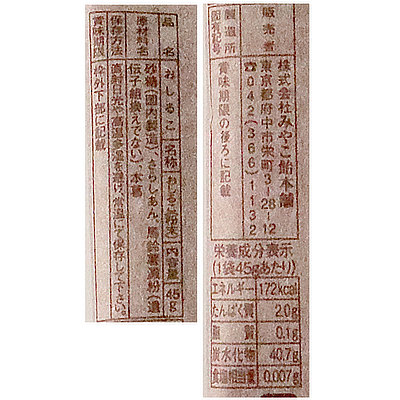 品名 おしるこ 名称 おしるこ(粉末) 内容量 45g
原材料名 砂糖(国内製造)、さらしあん、馬鈴薯澱粉(遺
伝子組換えでない)、本葛
保存方法 直射日光や高温多湿を避け、常温にて保存して下さい。
賞味期限 枠外下部に記載
販売者 株式会社みやこ飴本舗
東京都府中市栄町3-28-12
☎042(366)1132
製造所
固有記号 賞味期限の後ろに記載
栄養成分表示
(1袋45gあたり)
エネルギー 172kcal
たんぱく質 2.0g
脂質 0.1g
炭水化物 40.7g
食塩相当量 0.007g